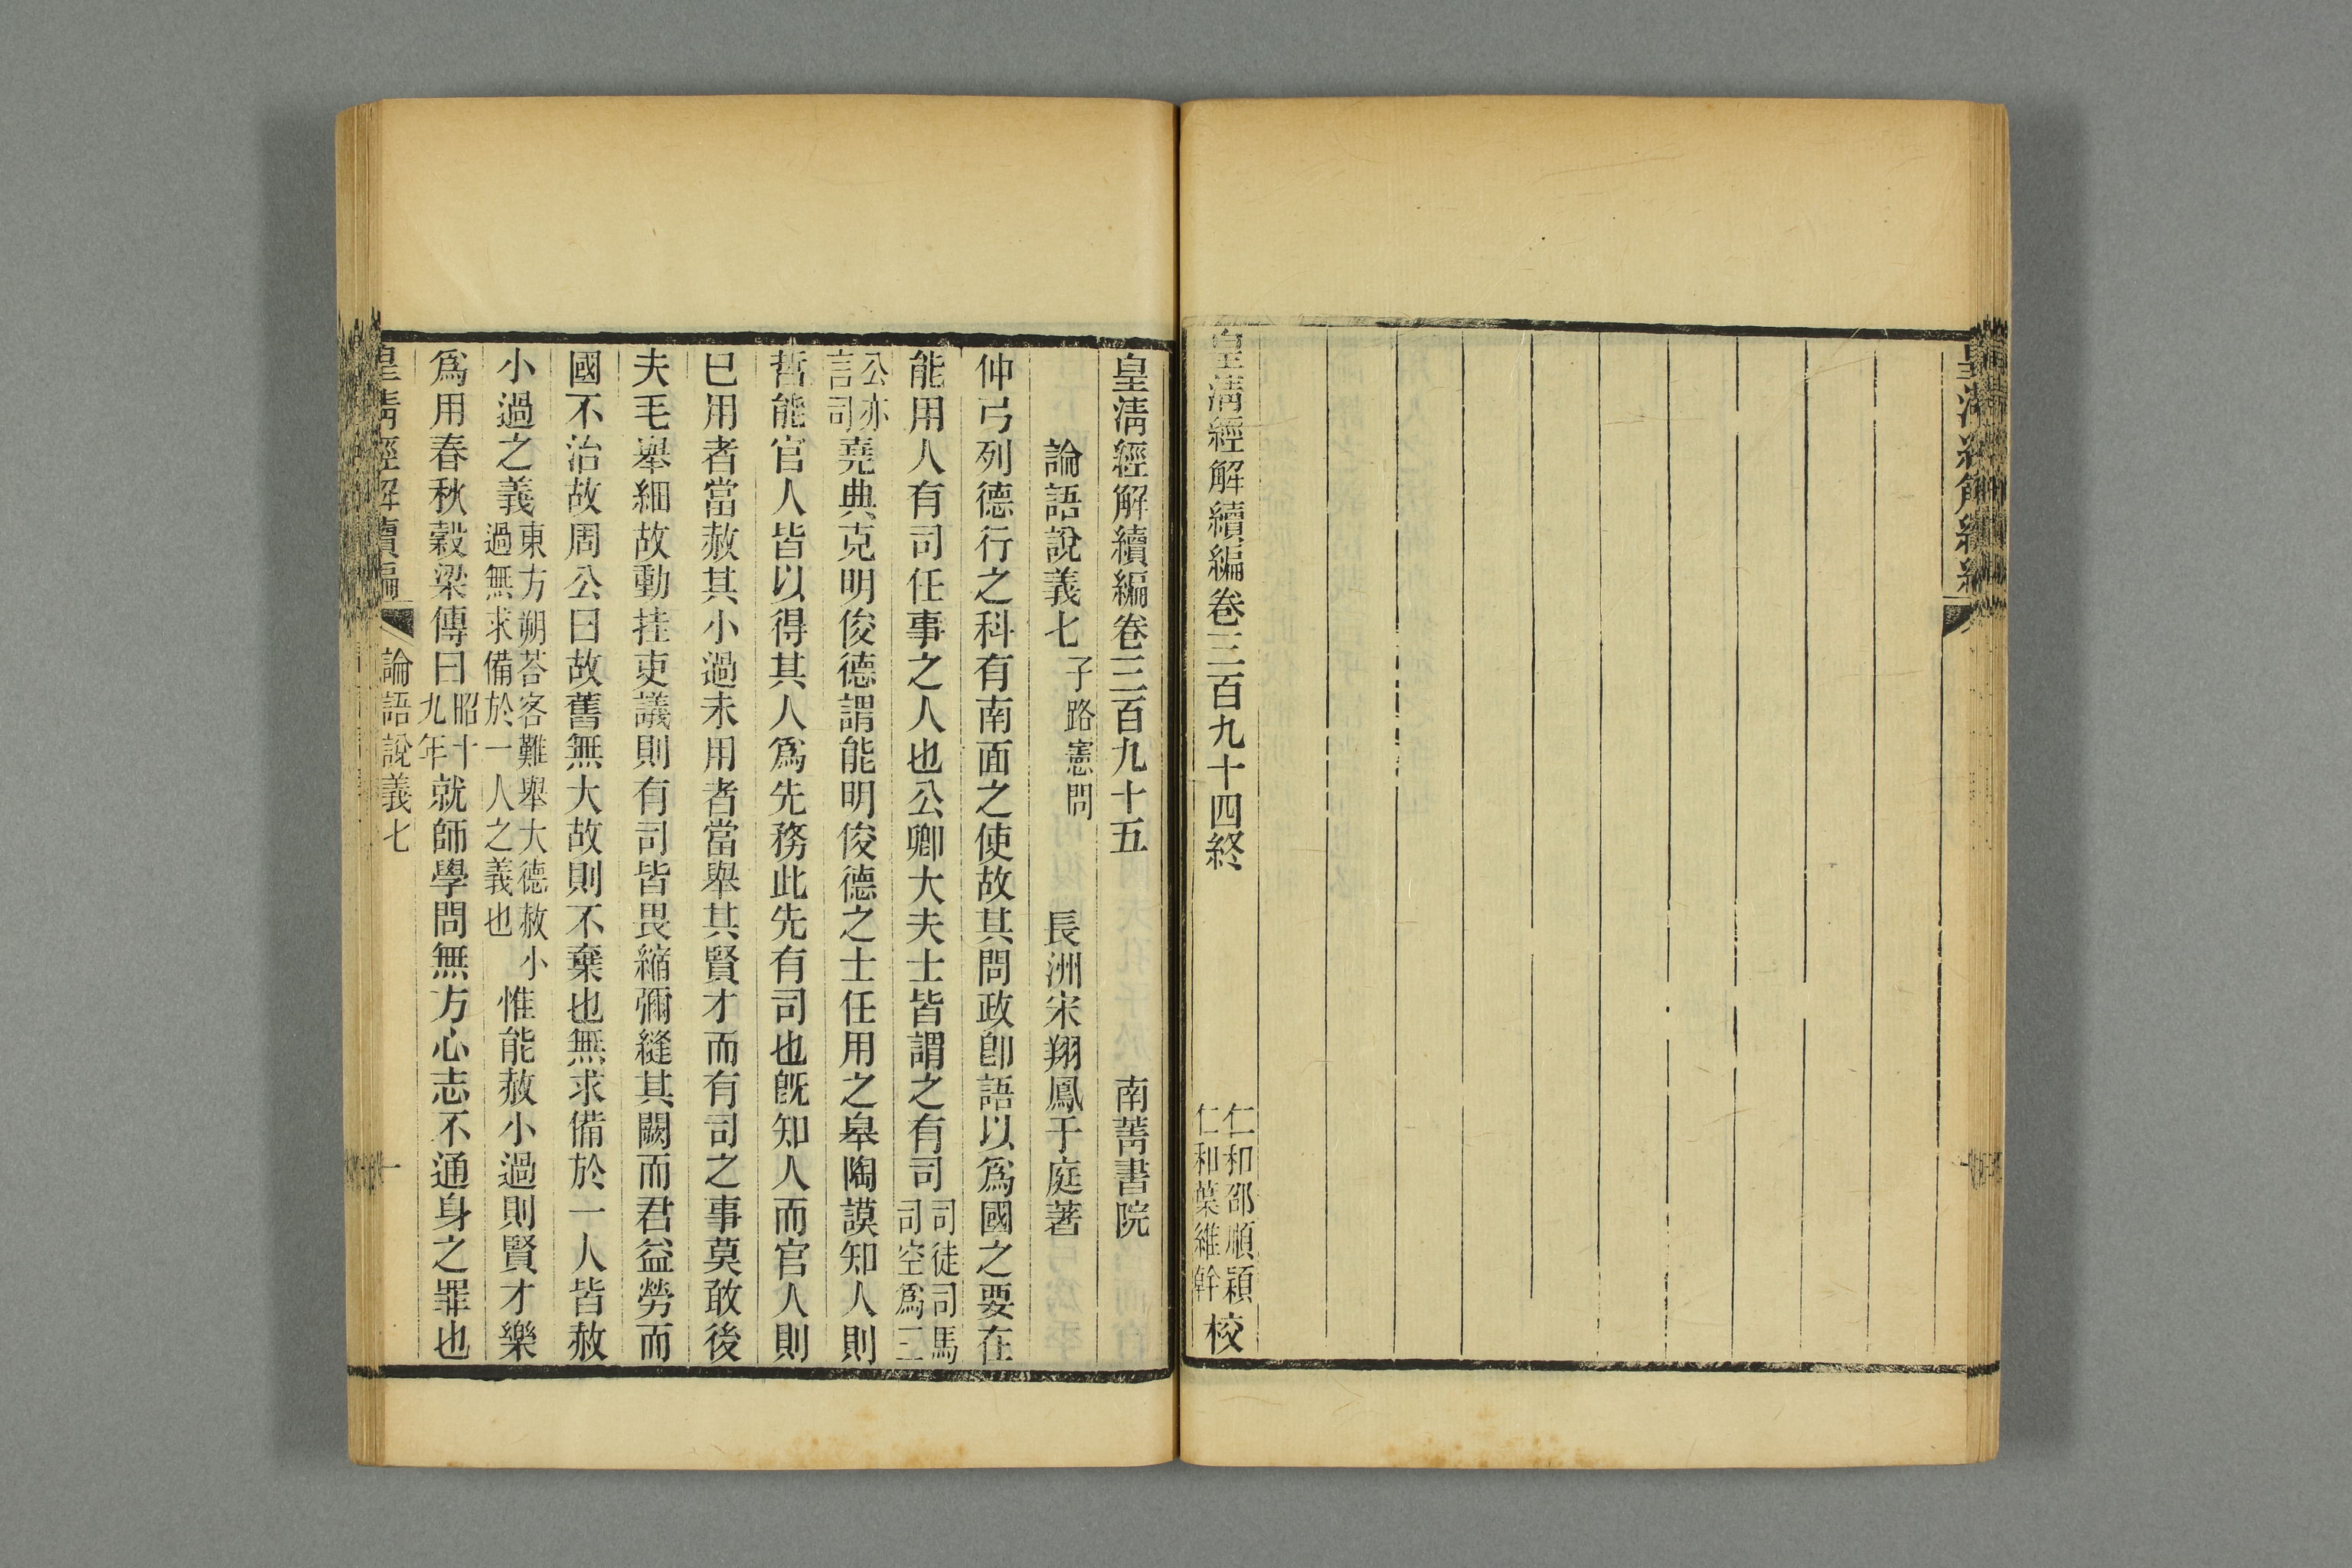 皇清經解續編
皇清經解續編卷三百九十四終
仁和邵順穎
仁和葉維幹
校
皇清經解續編卷三百九十五 南菁書院
論語說義七 子路憲問 長洲宋翔鳳于庭著
仲弓列德行之科有南面之使故其問政卽語以爲國之要在
能用人有司任事之人也公卿大夫士皆謂之有司司徒司馬司空爲三
公亦言司堯典克明俊德謂能明俊德之士任用之皋陶謨知人則
哲能官人皆以得其人爲先務此先有司也旣知人而官人則
已用者當赦其小過未用者當舉其賢才而有司之事莫敢後
夫毛舉細故動挂吏議則有司皆畏縮彌縫其闕而君益勞而
國不治故周公曰故舊無大故則不棄也無求備於一人皆赦
小過之義東方朔荅客難舉大德赦小過無求備於一人之義也惟能赦小過則賢才樂
爲用春秋穀梁傳曰昭十九年就師學問無方心志不通身之罪也
皇清經解續編 論語說義七 一